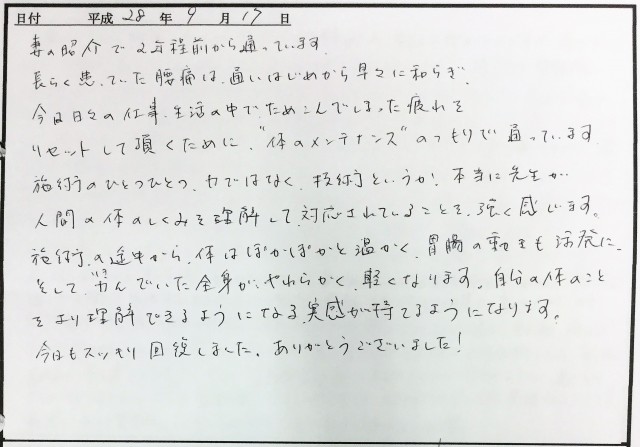 日付 平成 28 年 9 月 17 日
妻の紹介で2年程前から通っています。
長らく患っていた腰痛は、通いはじめから早々に和らぎ、
今は日々の仕事、生活の中でためこんでしまった疲れを
リセットして頂くために、"体のメンテナンス"のつもりで通っています
施術のひとつひとつ、力ではなく、技術というか、本当に先生が
人間の体のしくみを理解して対応されていることを、強く感じます。
施術の途中から、体はぽかぽかと温かく、胃腸の動きも活発に。
そして、力んでいた全身が、やわらかく、軽くなります。自分の体のこと
をより理解できるようになる実感が持てるようになります。
今日もスッキリ回復しました。ありがとうございました！